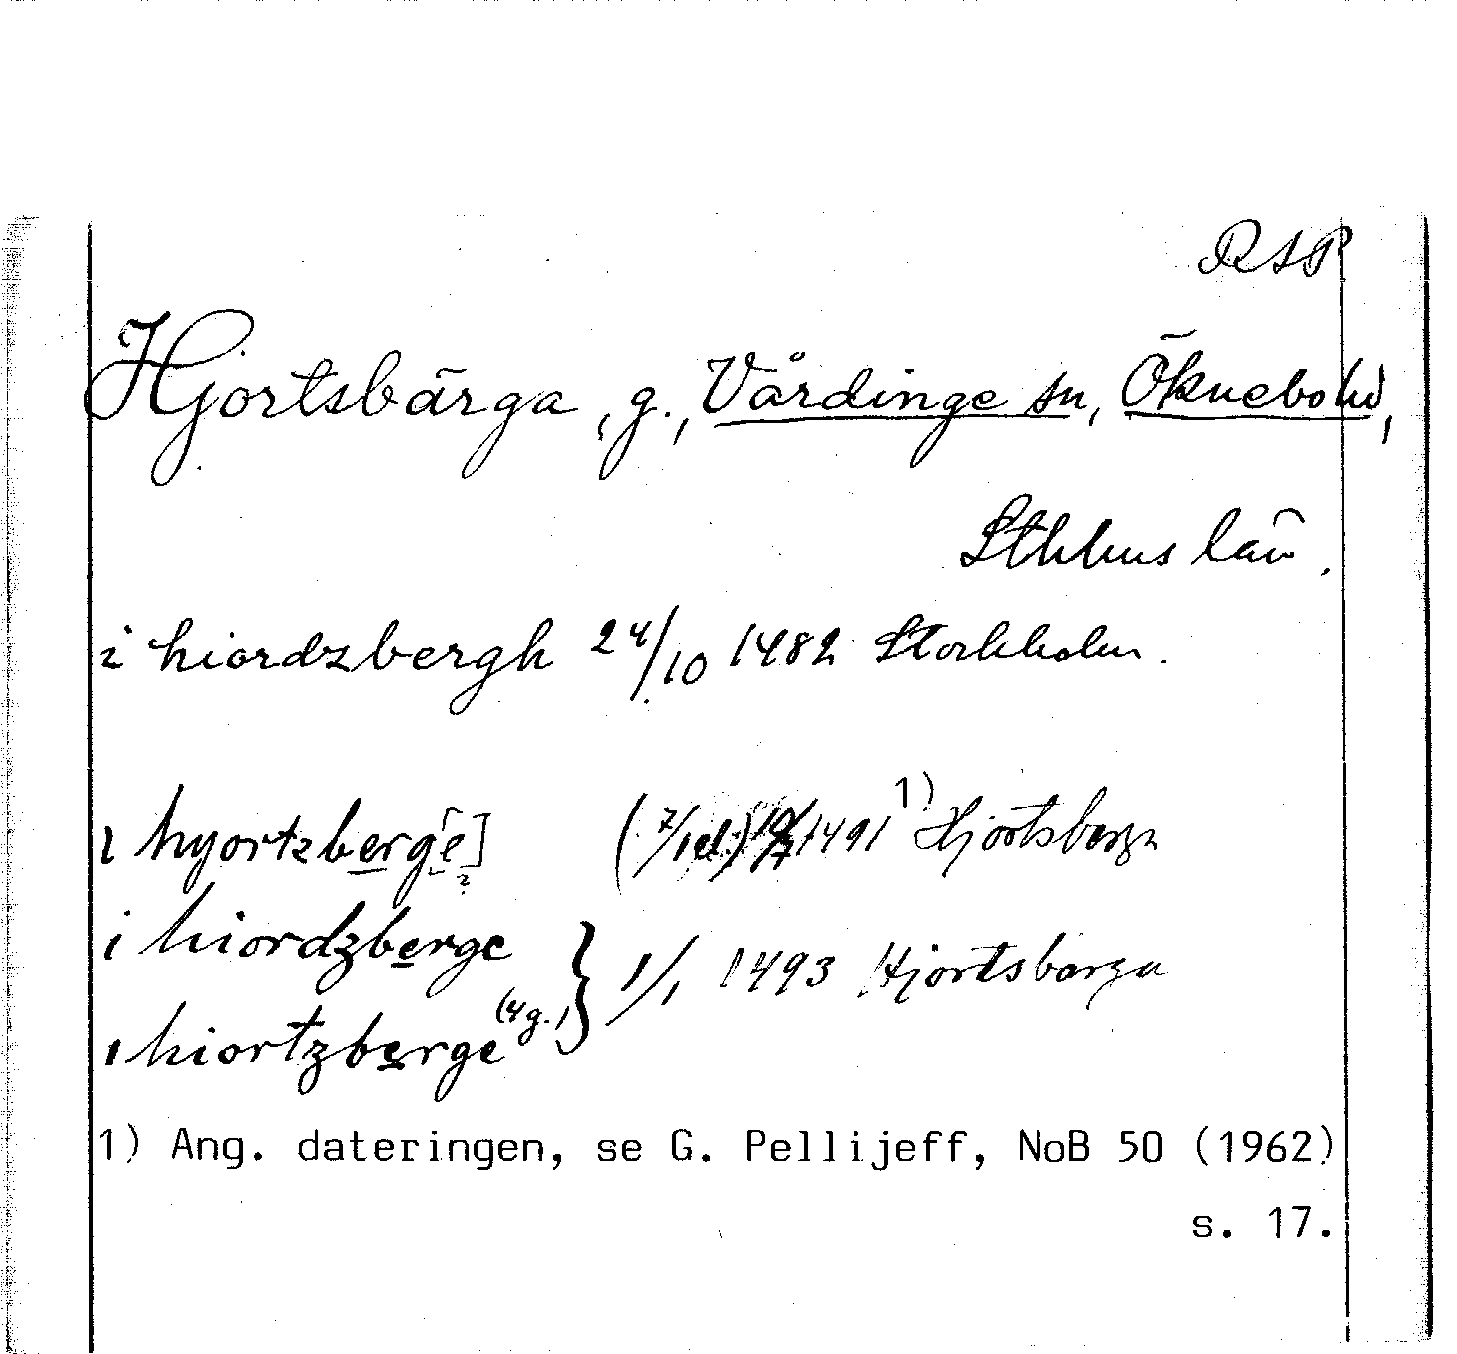 RAP
Hjortsbärga, g., Vårdinge sn, Öknebo hd,
Sthlms län.
i hiordzbergh 24/10 1482 Stockholm.
i hyortzberg[e] 1491 1) Hjortsberga
i hiordzberge
1/1 1493 Hjortsberga
i hiortzberge (4 g.)
1) Ang. dateringen, se G. Pellijeff, NoB 50 (1962)
s. 17.